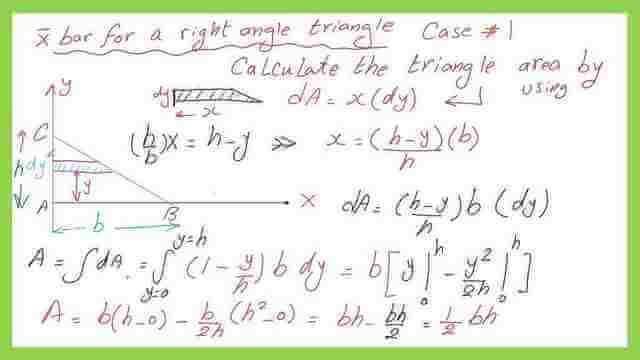 x̄ bar for a right angle triangle Case #1
Calculate the triangle area by
using
y
dy
x
dA = x(dy)
C
(h/b)x = h-y >> x = (h-y)/h (b)
h dy
y
A
B
x
b
dA = (h-y)/h b (dy)
A = ∫dA = ∫_{y=0}^{y=h} (1 - y/h) b dy = b[y|_0^h - y²/2h|_0^h]
A = b(h-0) - b/2h (h²-0) = bh - bh/2 = 1/2 bh